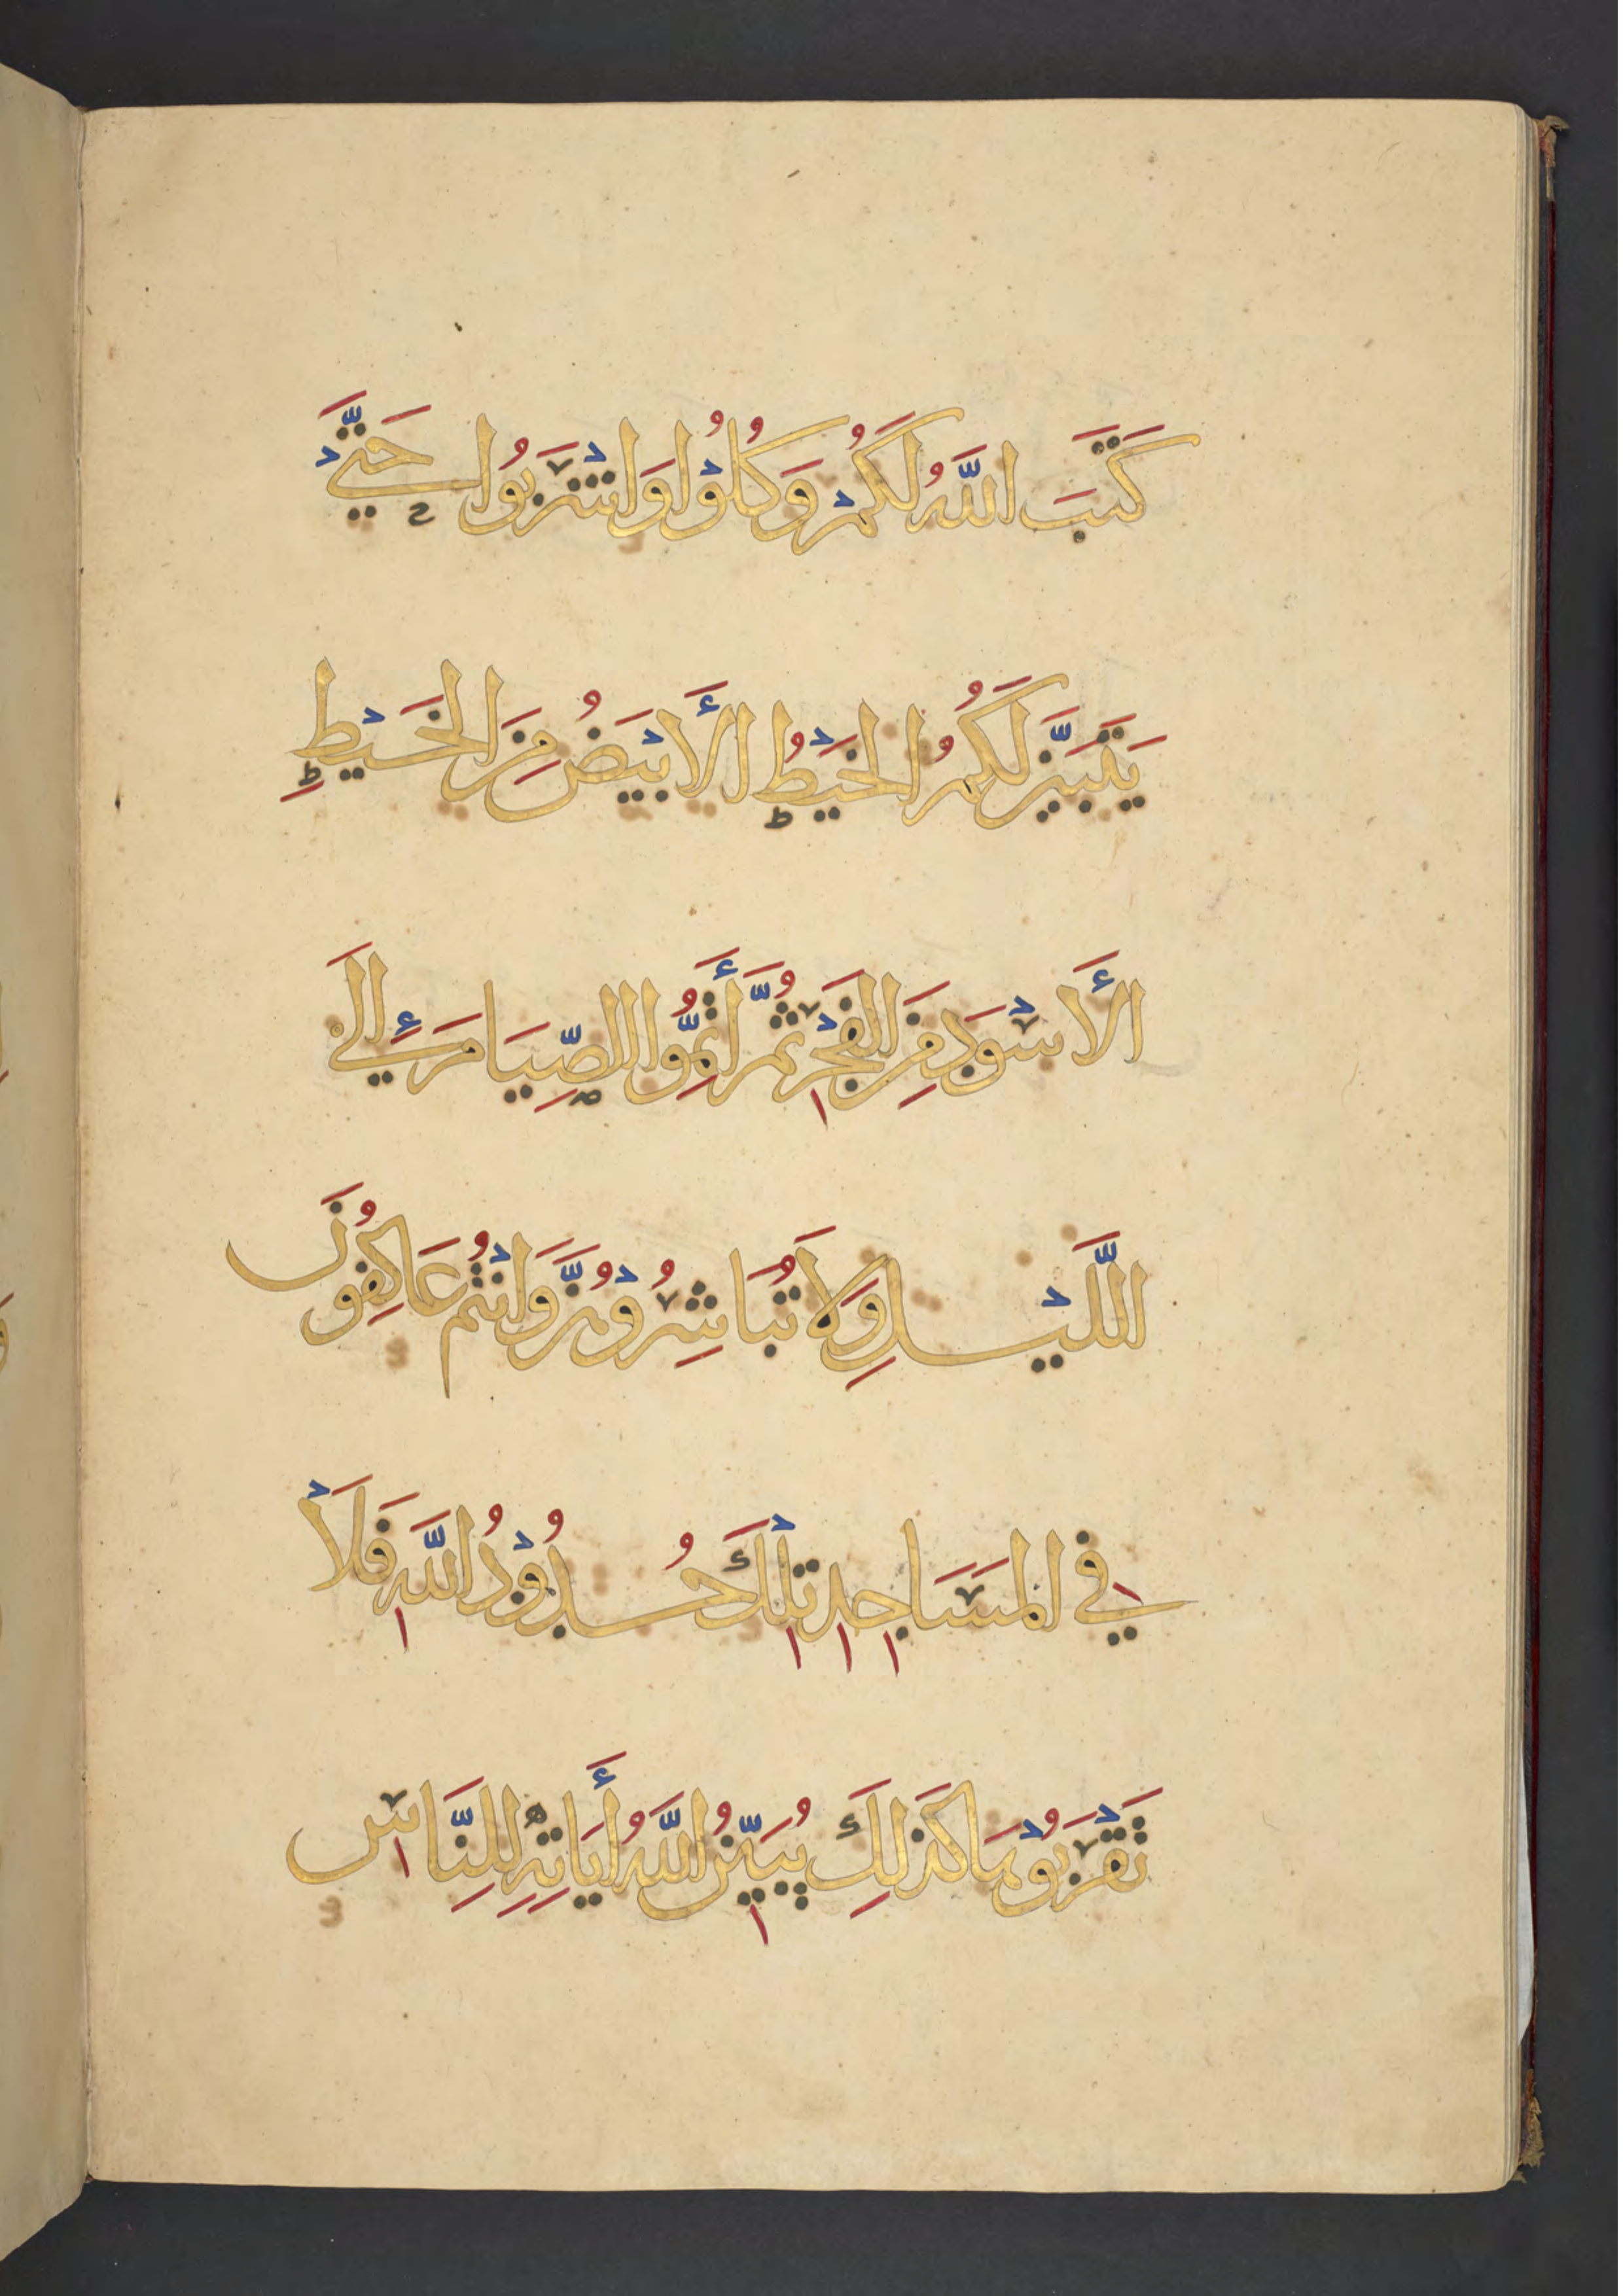 كَتَبَ اللَّهُ لَكُمْ وَكُلُوْا وَاشْرَبُوا حَتَّىْ
يَتَبَيَّنَ لَكُمُ الخَيْطُ الأَبْيَضُ مِنَ الخَيْطِ
الأَسْوَدِ مِنَ الفَجْرِ ثُمَّ أَتِمُّوا الصِّيَامَ إِلَى
اللَّيْلِ وَلَا تُبَاشِرُوْهُنَّ وَأَنْتُمْ عَاكِفُونَ
فِي المَسَاجِدِ تِلْكَ حُدُوْدُ اللَّهِ فَلَاْ
تَقْرَبُوْهَا كَذَلِكَ يُبَيِّنُ اللَّهُ أَيَاتِهِ لِلنَّاسِ